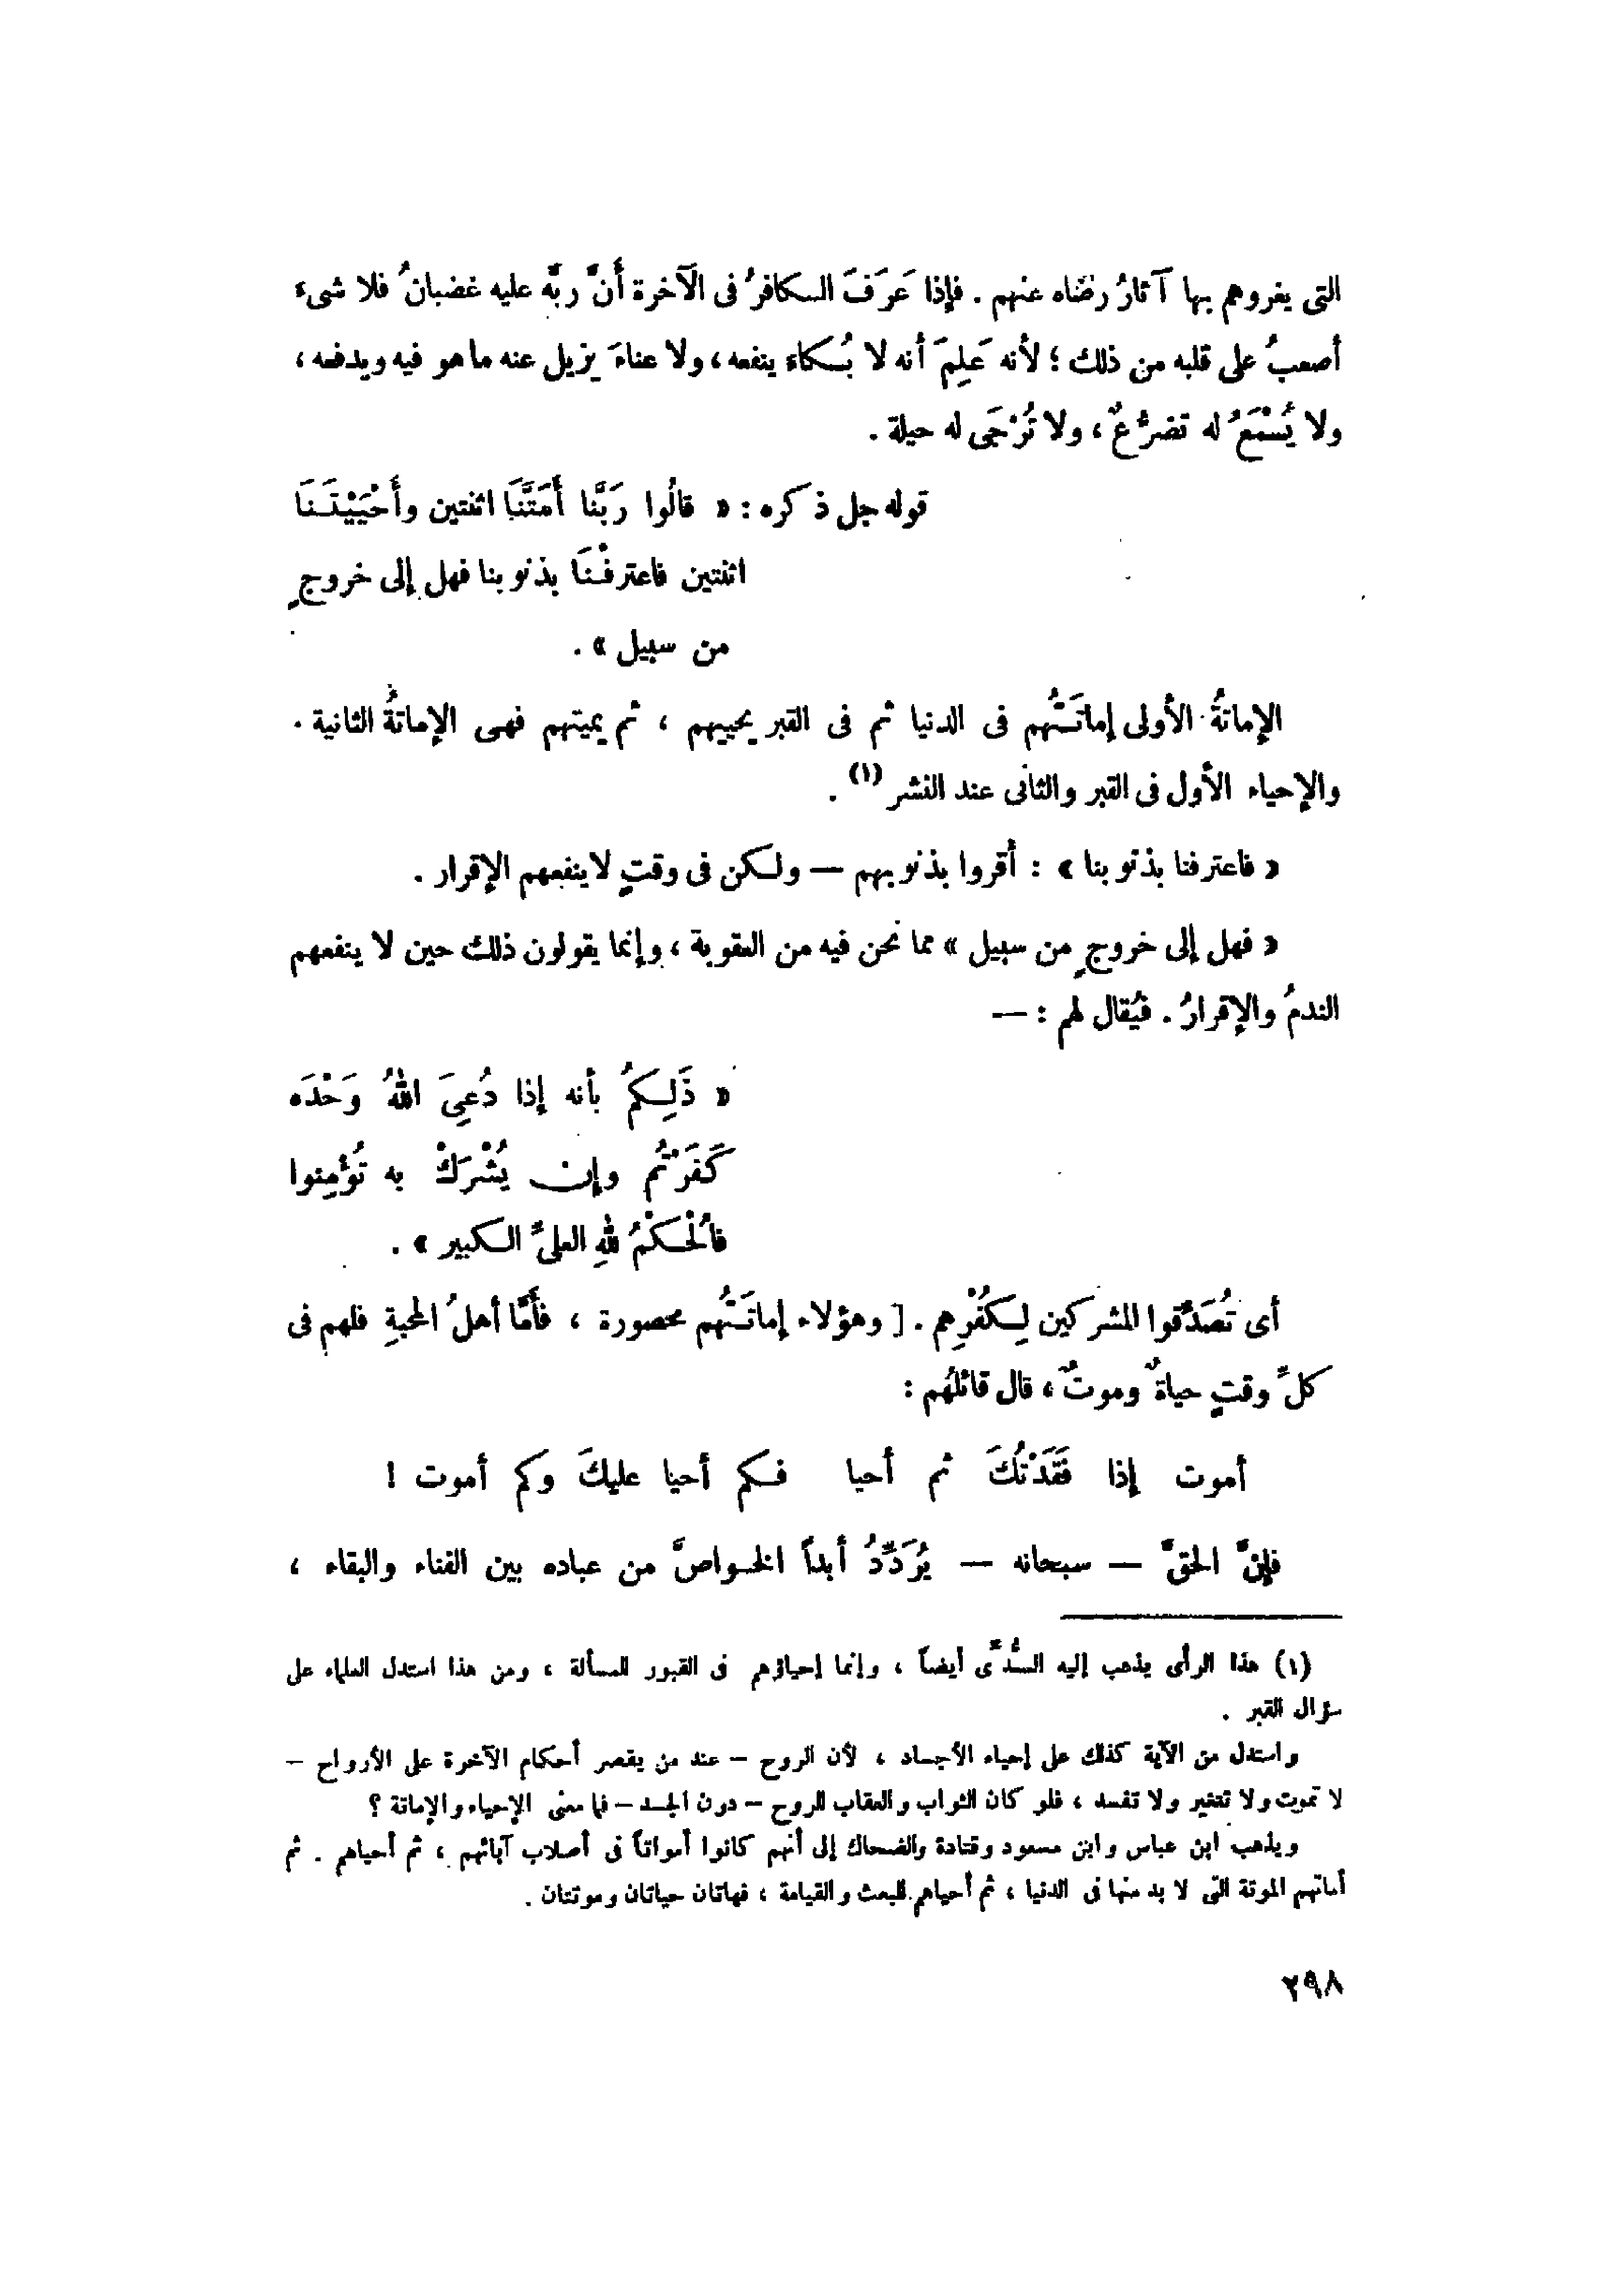 التى يغروهم بها آثارُ رضاه عنهم . فإذا عَرَفَ الكافرُ فى الآخرة أَنَّ ربَّه عليه غضبانُ فلا شىء
أصعبُ على قلبه من ذلك ؛ لأنه عَلِمَ أنه لا بُكاءَ ينفعه ، ولا عناءَ يزيل عنه ما هو فيه ويدفعه ،
ولا يُسْمَعُ له تضرُّعٌ ، ولا تُرْجَى له حيلة .
قوله جل ذكره : « قالُوا رَبَّنا أَمَتَّنَا اثنتين وأَحْيَيْتَنَا
اثنتين فاعترفْنَا بذنوبنا فهل إلى خروجٍ
من سبيل » .
الإماتةُ الأولى إماتَتُهم فى الدنيا ثم فى القبر يحييهم ، ثم يميتهم فهى الإماتةُ الثانية .
والإحياء الأول فى القبر والثانى عند النشر (١) .
« فاعترفنا بذنوبنا » : أقروا بذنوبهم — ولكن فى وقتٍ لا ينفعهم الإقرار .
« فهل إلى خروجٍ من سبيل » مما نحن فيه من العقوبة ، وإنما يقولون ذلك حين لا ينفعهم
الندمُ والإقرارُ . فيُقال لهم : —
« ذَلِكمُ بأنه إذا دُعِىَ اللهُ وَحْدَه
كَفَرْتُم وإن يُشْرَكْ به تُؤْمِنوا
فاُلْحكْمُ للهِ العلىِّ الكبير » .
أى تُصَدِّقوا المشركين لِكُفْرِهم . [ وهؤلاء إماتَتُهم محصورة ، فأَمَّا أهلُ المحبةِ فلهم فى
كلِّ وقتٍ حياةٌ وموتٌ ، قال قائلُهم :
أموت إذا فَقَدْتُكَ ثم أحيا فكم أحيا عليكَ وكم أموت !
فإنَّ الحقَّ — سبحانه — يُرَدِّدُ أبداً الخواصَّ من عباده بين الفناء والبقاء ،
(١) هذا الرأى يذهب إليه السُّدِّى أيضاً ، وإنما إحياؤهم فى القبور للمسألة ، ومن هذا استدل العلماء على
سؤال القبر .
واستدل من الآية كذلك على إحياء الأجساد ، لأن الروح – عند من يقصر أحكام الآخرة على الأرواح –
لا تموت ولا تتغير ولا تفسد ، فلو كان الثواب والعقاب للروح – دون الجسد – فما معنى الإحياء والإماتة ؟
ويذهب ابن عباس وابن مسعود وقتادة والضحاك إلى أنهم كانوا أمواتاً فى أصلاب آبائهم ، ثم أحياهم . ثم
أماتهم الموتة التى لا بد منها فى الدنيا ، ثم أحياهم للبعث والقيامة ، فهاتان حياتان وموتتان .
٢٩٨